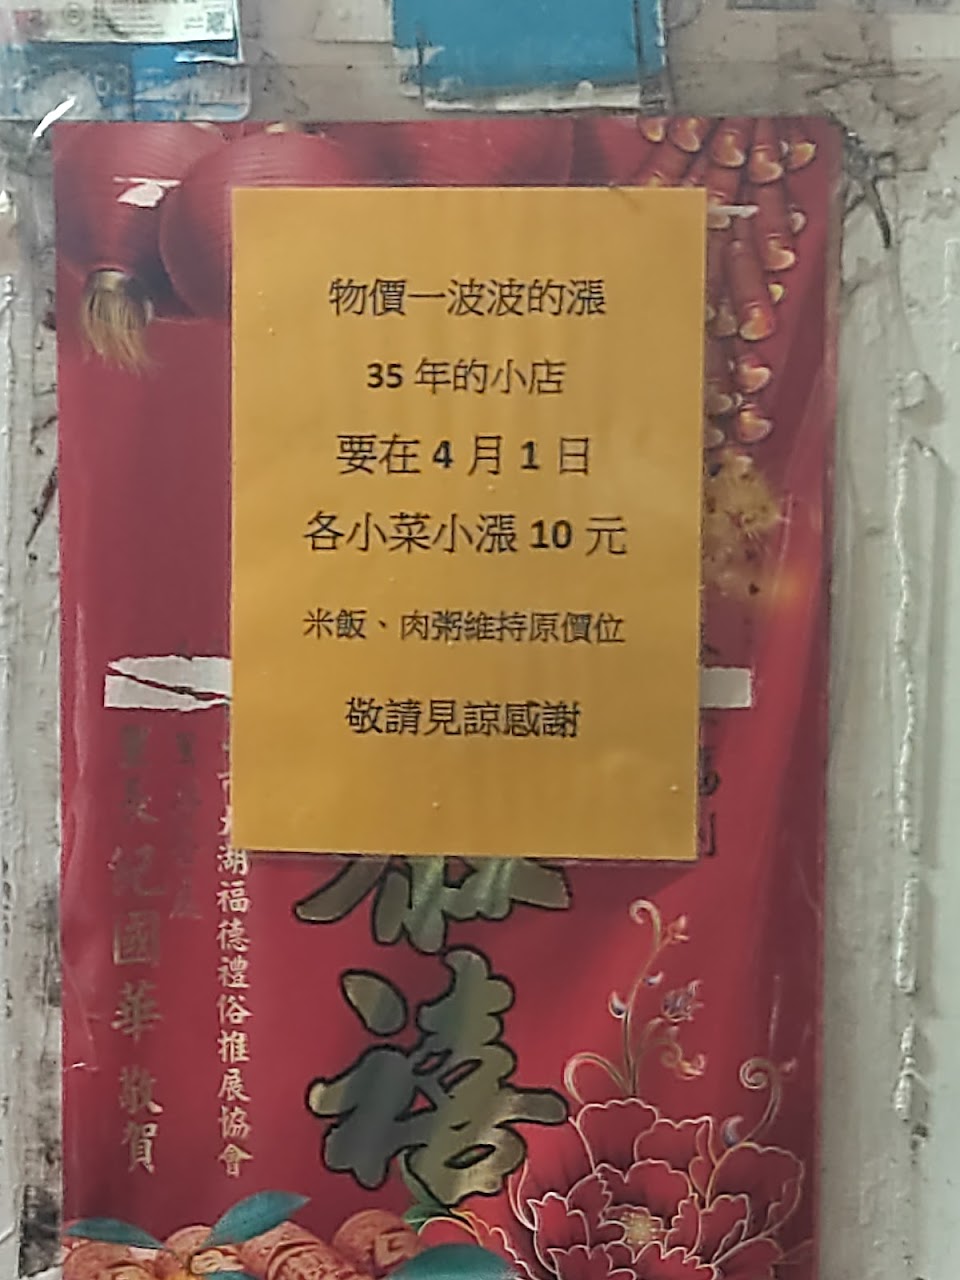 物價一波波的漲
35 年的小店
要在 4 月 1 日
各小菜小漲 10 元
米飯、肉粥維持原價位
敬請見諒感謝
禧
湖福德禮俗推展協會
長紀國華 敬賀